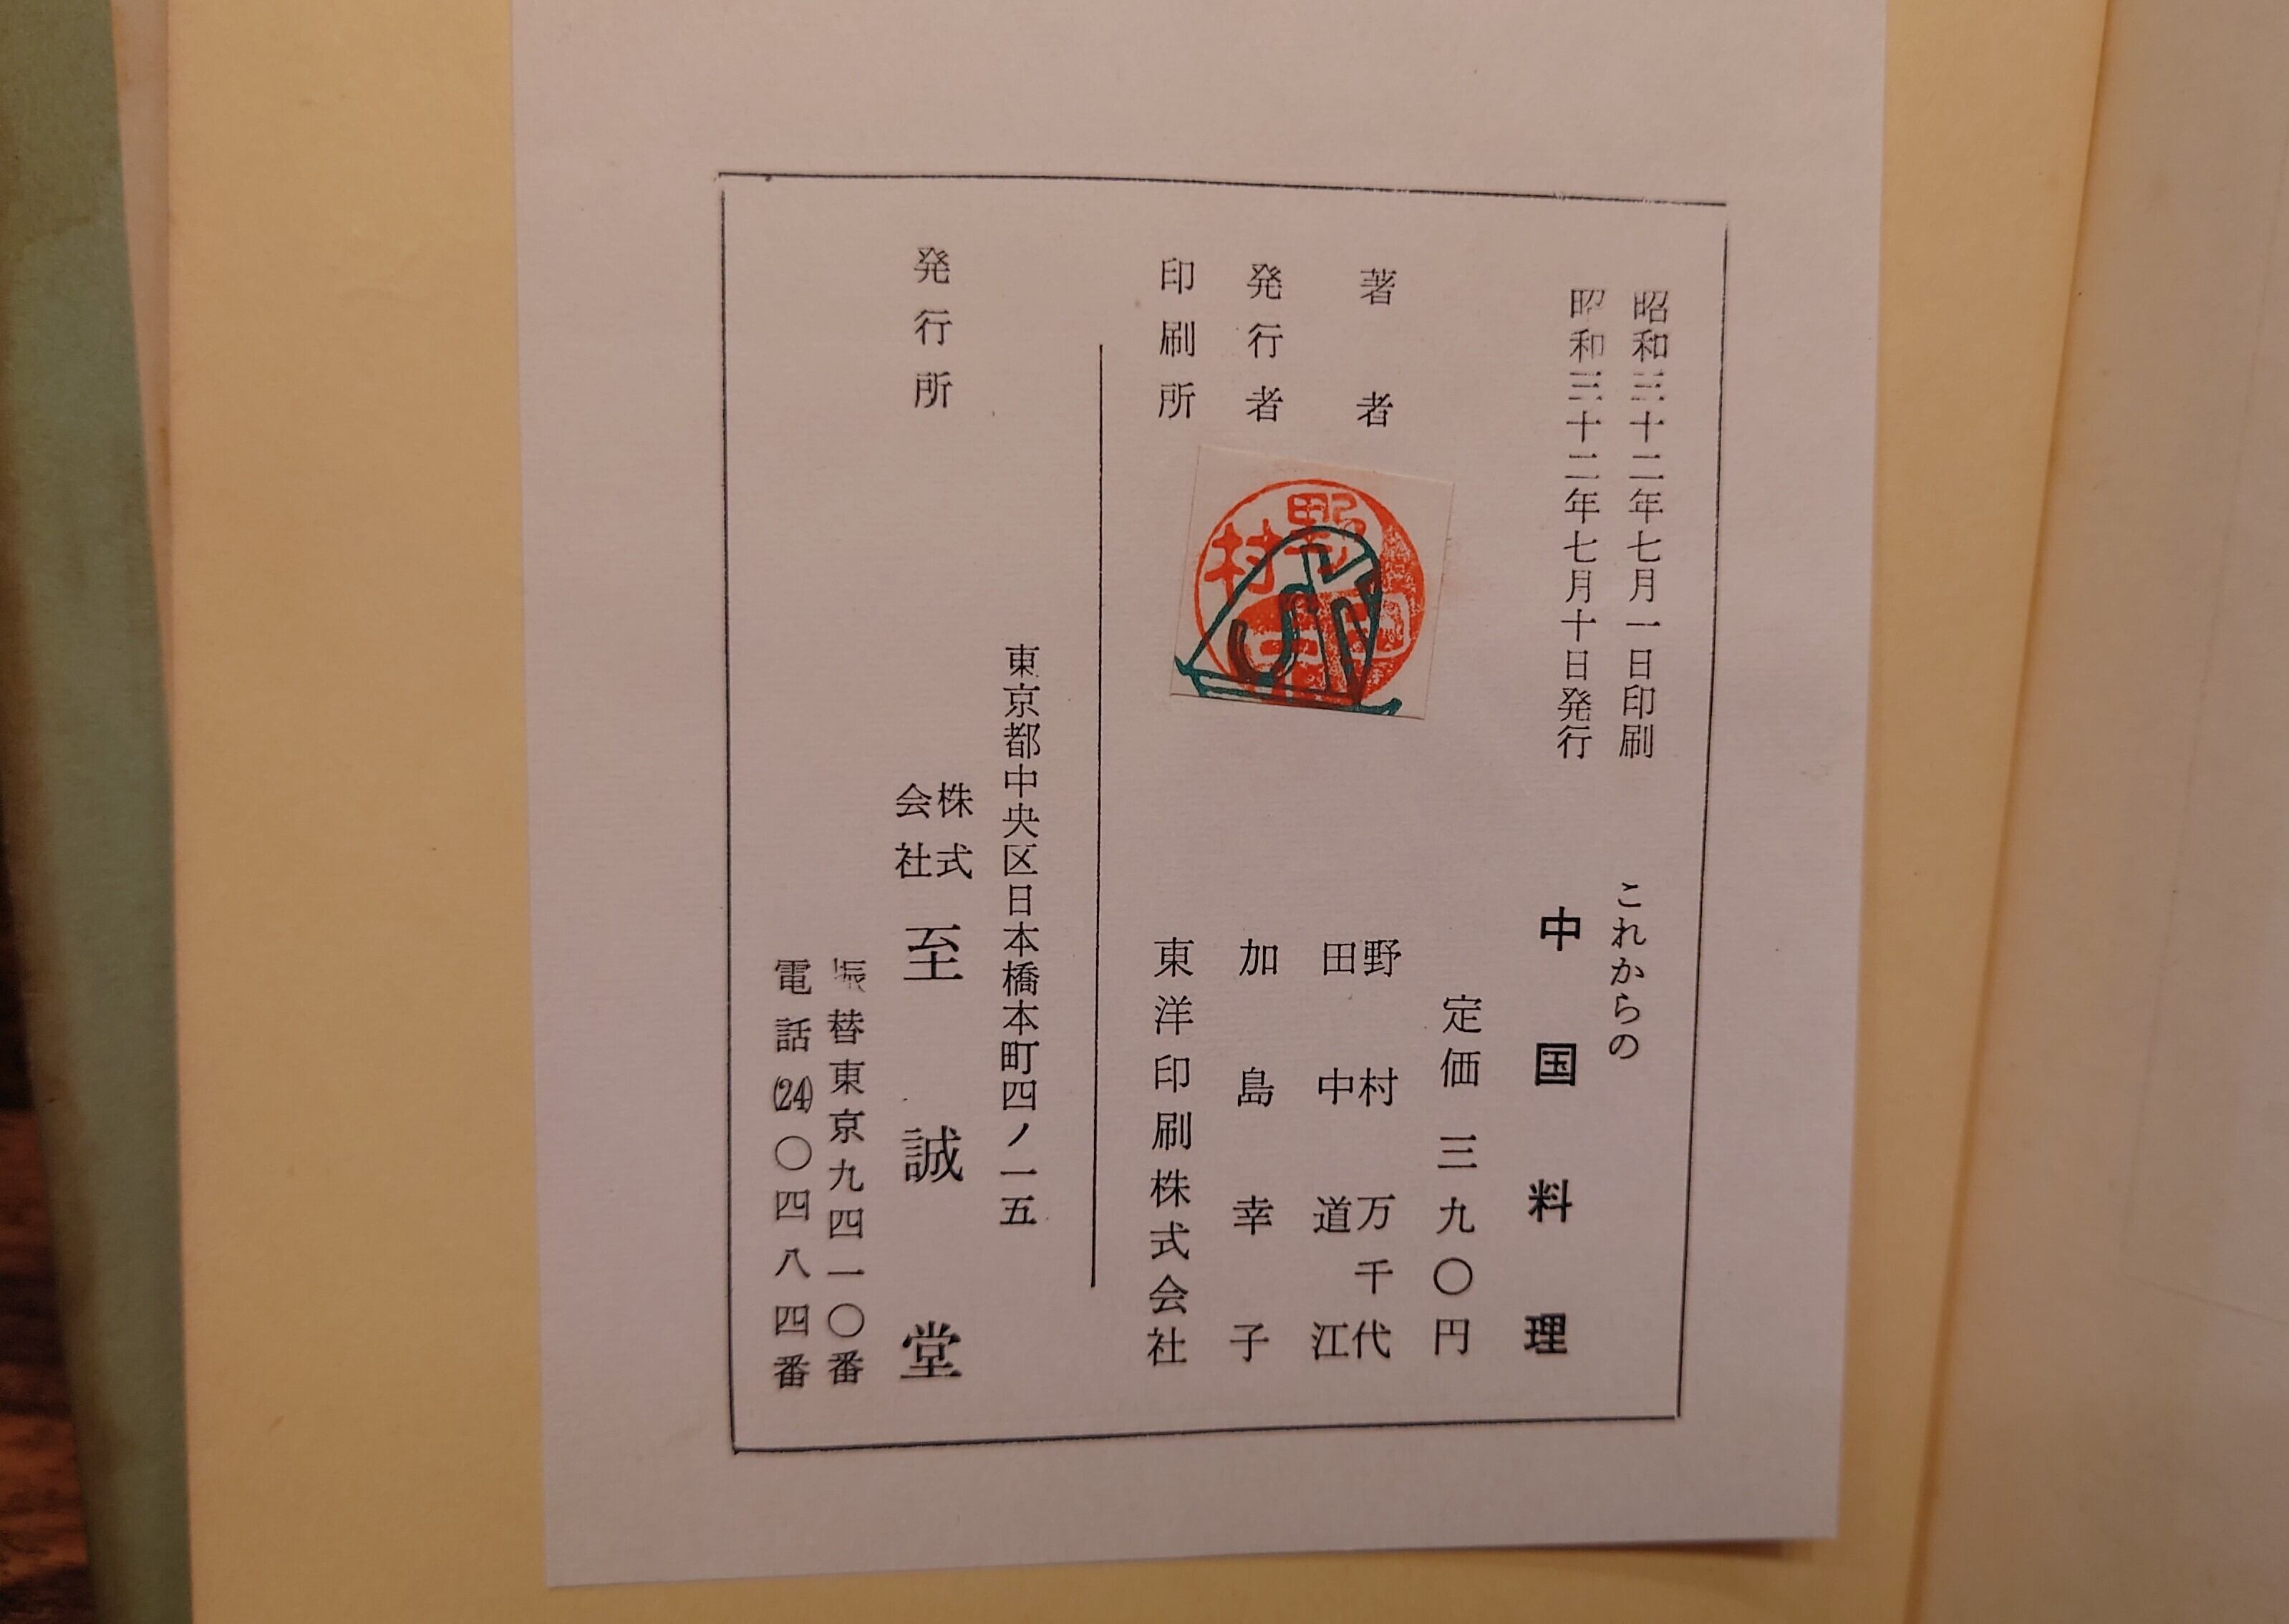 昭和三十二年七月一日印刷
昭和三十二年七月十日発行
これからの
中国料理
定価 三九〇円
著者
野村万千代
田中道江
発行者 加島幸子
印刷所 東洋印刷株式会社
野村
田中
東京都中央区日本橋本町四ノ一五
発行所 株式会社 至誠堂
振替東京九四一〇番
電話(24)〇四八四番